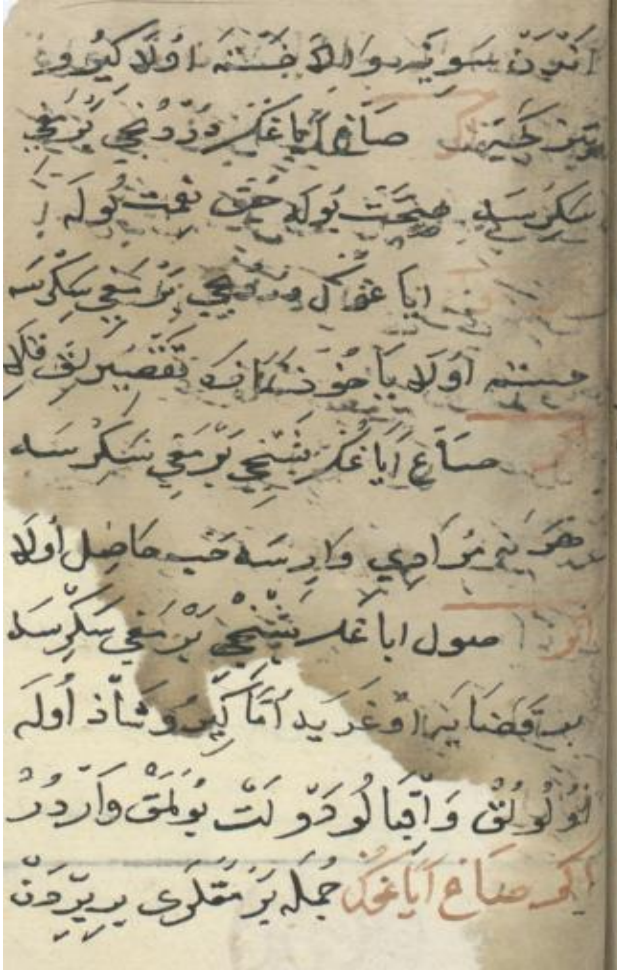 اندن سوينه و الا خسته اولا كيرو
تيز كچيز اكر صاغ اياغك دردنجي برمغي
سكرسه صحت بوله حق نعمت بوله
اياغك دردنجي برمغي سكرسه
خسته اولا يا خود نمازنده تقصيرلق قلا
اكر صاغ اياغك بشنجي برمغي سكرسه
هر نه مرادي وارسه هپ حاصل اولا
اكر صول اياغك بشنجي برمغي سكرسه
بر قضايه اوغريه اما كيرو شاذ اوله
اولولق و اقبالو دولت بولمق واردر
اكر صاغ اياغك جمله برمقلري بربردن